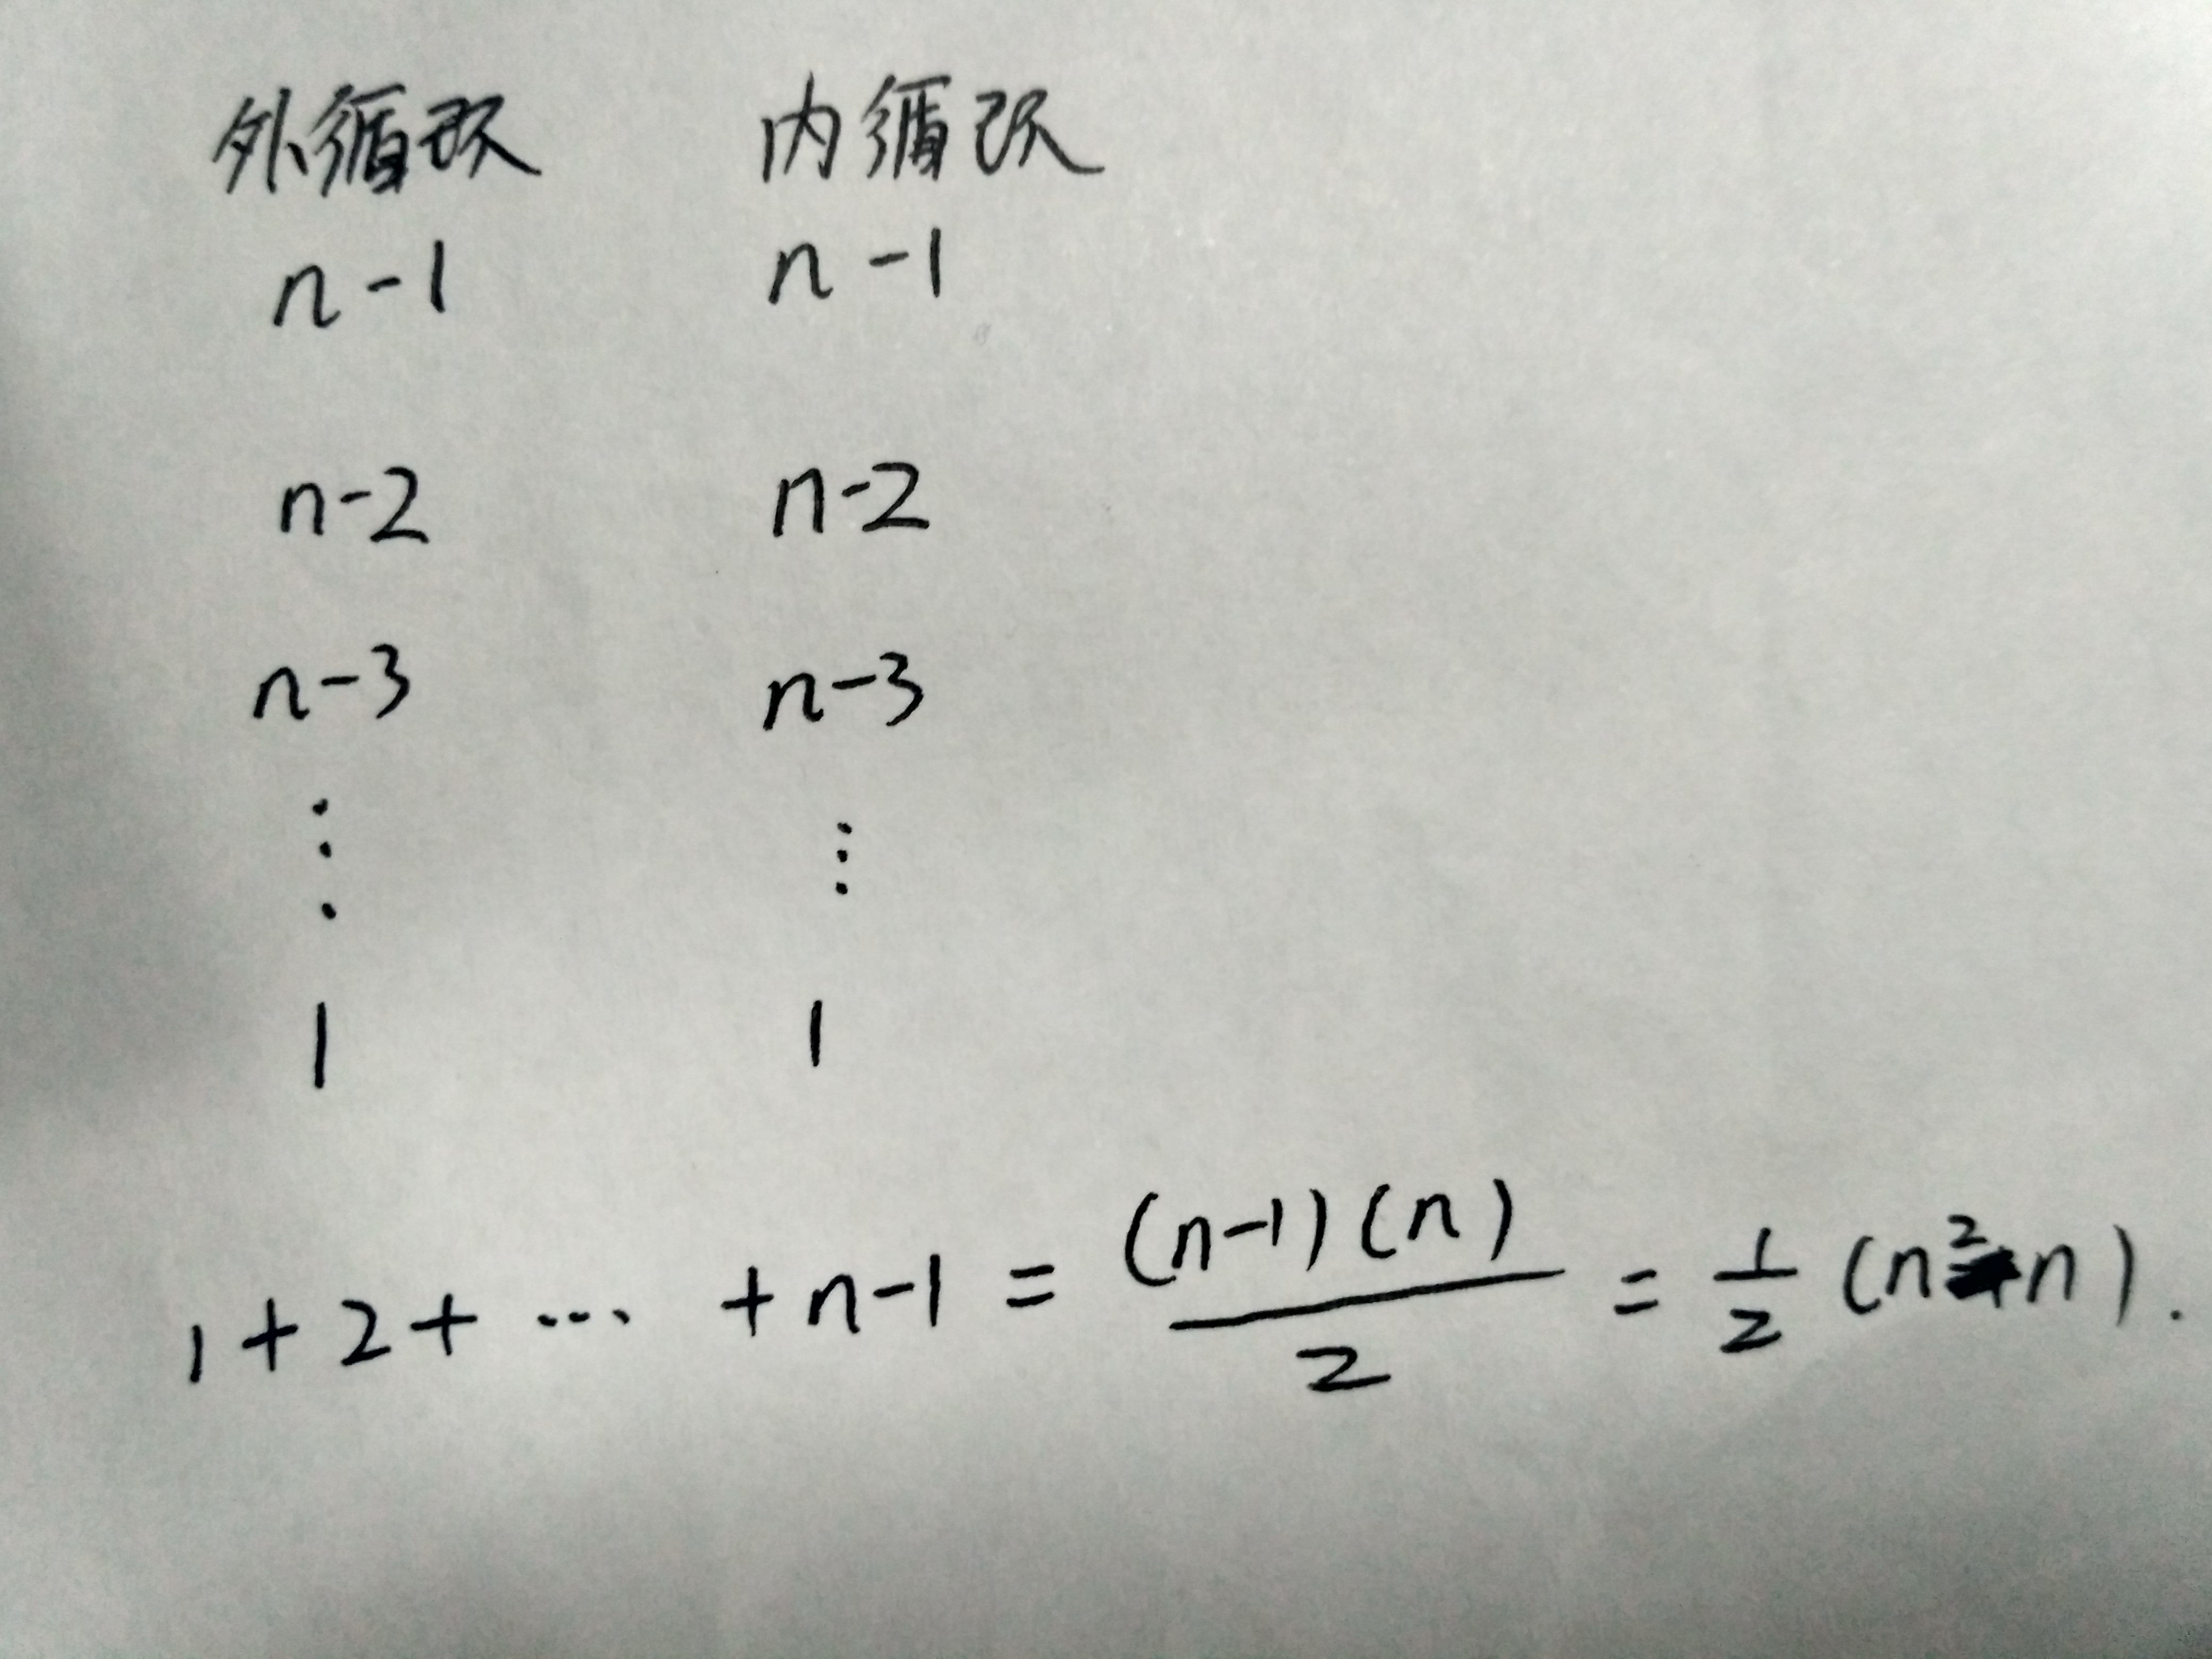 外循环 内循环
n-1 n-1
n-2 n-2
n-3 n-3
⋮ ⋮
1 1
1+2+ ... +n-1 = (n-1)(n)/2 = 1/2 (n²-n).